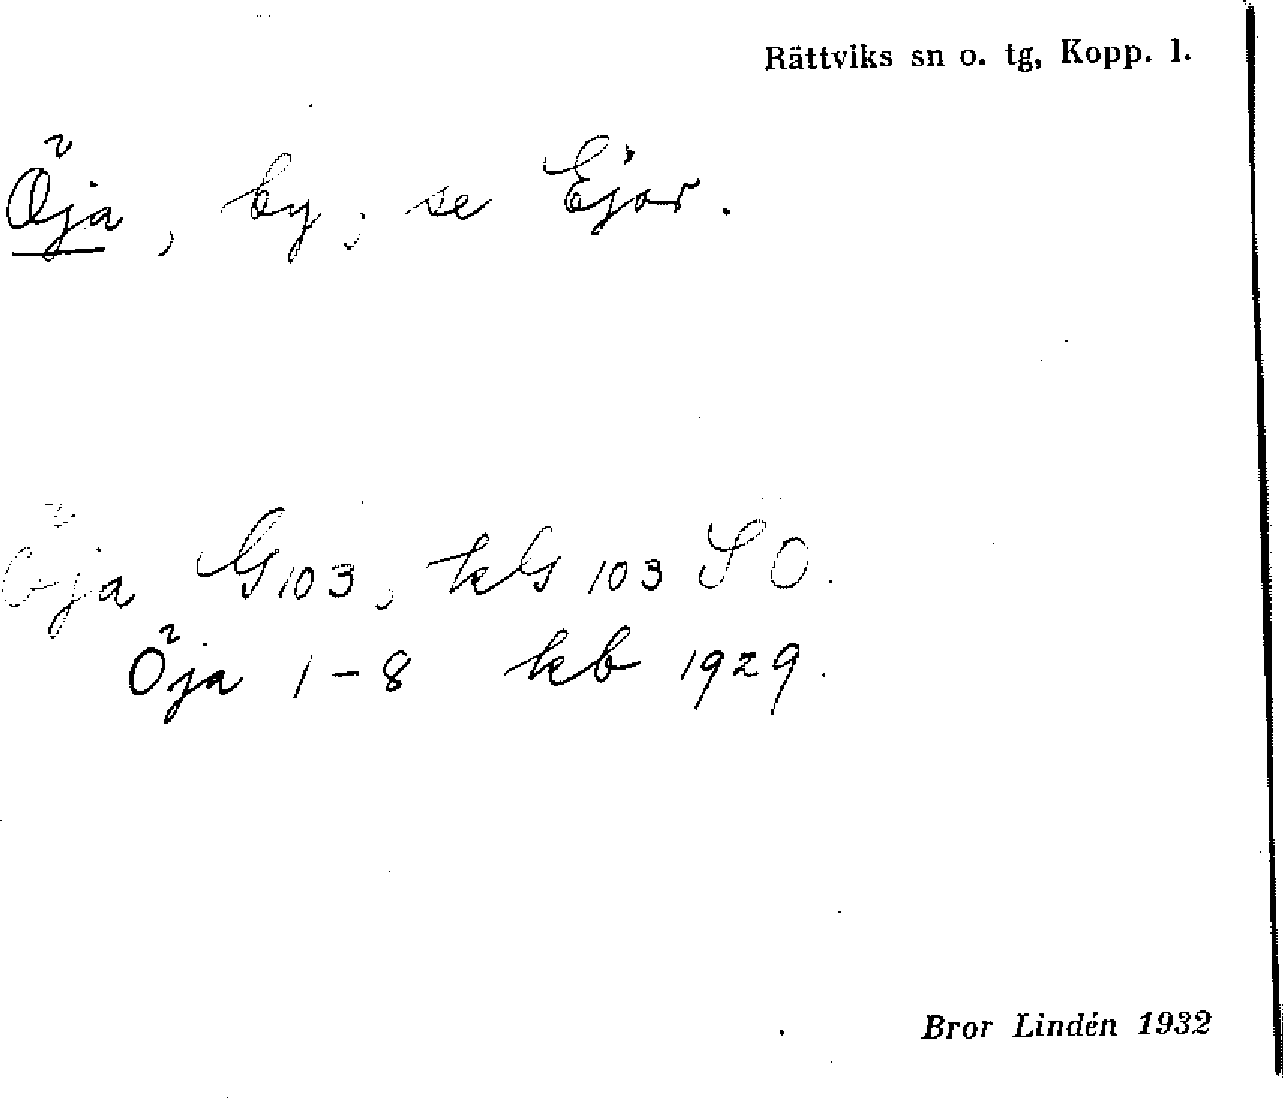 Rättviks sn o. tg, Kopp. l.
Öja, by; se Ejor.
Öja G103, kG 103 SO.
Öja 1-8 kb 1929.
Bror Lindén 1932